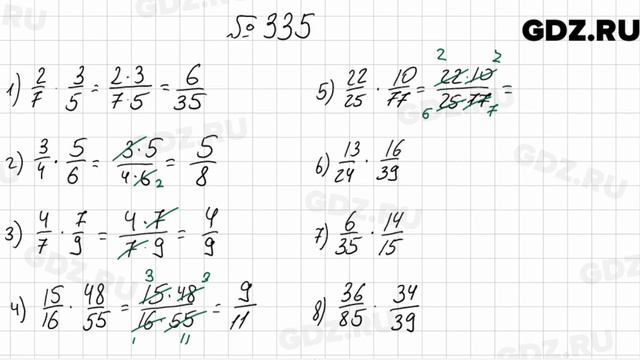 № 335
GDZ.RU
1) 2/7 · 3/5 = 2·3/7·5 = 6/35
2) 3/4 · 5/6 = 3·5/4·6 2 = 5/8
3) 4/7 · 7/9 = 4·7/7·9 = 4/9
4) 15/16 · 48/55 = 3 3 15·48/16·55 1 11 = 9/11
5) 22/25 · 10/77 = 2 2 22·10/25·77 6 7 =
6) 13/24 · 16/39
7) 6/35 · 14/15
8) 36/85 · 34/39